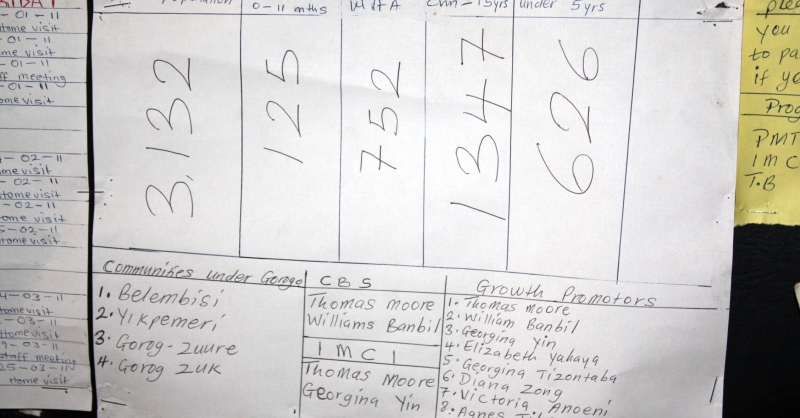 - 01 - 11
Home visit
- 01 - 11
me visit
- 01 - 11
ff meeting
- 01 - 11
ome visit
- 02 - 11
me visit
- 02 - 11
Home visit
- 02 - 11
ome visit
5 - 02 - 11
Home visit
4 - 03 - 11
Home visit
- 03 - 11
Home visit
9 - 03 - 11
staff meeting
25 - 03 - 11
Home visit
Population
0-11 mths
WIFA
Chn - 15yrs
under 5 yrs
3,132
125
752
1347
626
Communities under Gorogo
1. Belembisi
2. Yikpemeri
3. Gorog-Zuure
4. Gorog Zuk
CBS
Thomas Moore
Williams Banbil
IMCI
Thomas Moore
Georgina Yin
Growth Promotors
1. Thomas Moore
2. William Banbil
3. Georgina Yin
4. Elizabeth Yahaya
5. Georgina Tizontaba
6. Diana Zong
7. Victoria Anoeni
8. Agnes
you
to pa
if ye
Prog
PMT
IMC
T.B